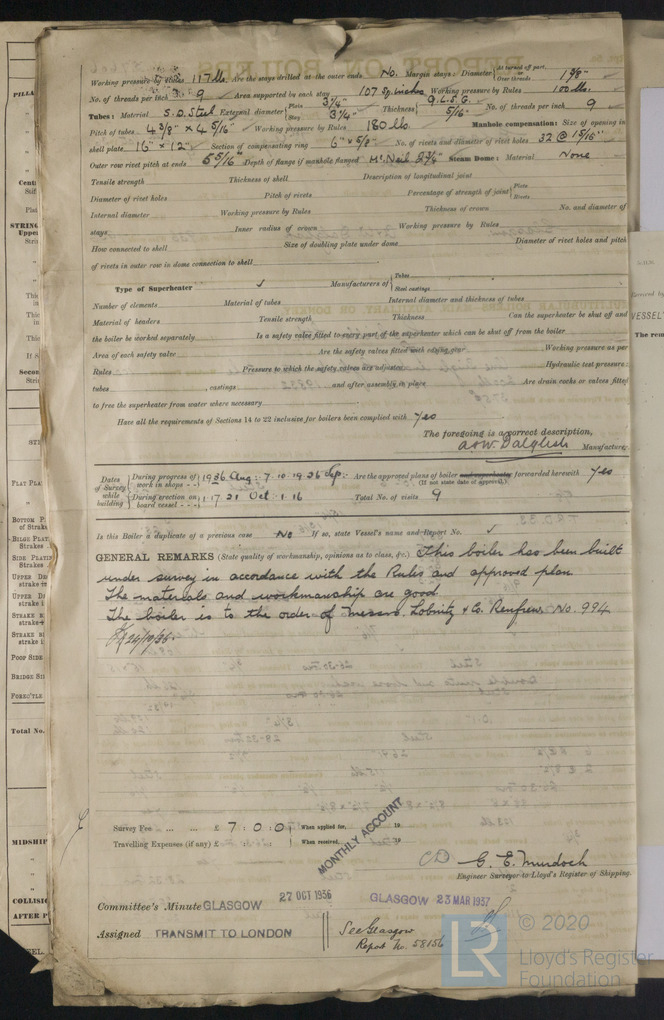 Working pressure by Rules 117 lb. Are the stays drilled at the outer ends No. Margin stays: Diameter { At turned off part, or Over threads 1 5/8"
No. of threads per inch 9 Area supported by each stay 107 Sq. inches Working pressure by Rules 100 lbs.
Tubes: Material S.D. Steel External diameter { Plain 3 1/4" Stay 3 1/4" Thickness { 9.L.S.G. 5/16" No. of threads per inch 9
Pitch of tubes 4 3/8" x 4 5/16" Working pressure by Rules 180 lbs Manhole compensation: Size of opening in
shell plate 16" x 12" Section of compensating ring 6" x 5/8" No. of rivets and diameter of rivet holes 32 @ 15/16"
Outer row rivet pitch at ends 5 5/16" Depth of flange if manhole flanged McNeil 2 3/4" Steam Dome: Material None
Tensile strength Thickness of shell Description of longitudinal joint
Diameter of rivet holes Pitch of rivets Percentage of strength of joint { Plate Rivets
Internal diameter Working pressure by Rules Thickness of crown No. and diameter of
stays Inner radius of crown Working pressure by Rules
How connected to shell Size of doubling plate under dome Diameter of rivet holes and pitch
of rivets in outer row in dome connection to shell
Type of Superheater Manufacturers of { Tubes Steel castings
Number of elements Material of tubes Internal diameter and thickness of tubes
Material of headers Tensile strength Thickness Can the superheater be shut off and
the boiler be worked separately Is a safety valve fitted to every part of the superheater which can be shut off from the boiler
Area of each safety valve Are the safety valves fitted with easing gear Working pressure as per
Rules Pressure to which the safety valves are adjusted Hydraulic test pressure:
tubes , castings and after assembly in place Are drain cocks or valves fitted
to free the superheater from water where necessary
Have all the requirements of Sections 14 to 22 inclusive for boilers been complied with Yes
The foregoing is a correct description,
A & W. Dalglish Manufacturer.
Dates of Survey while building { During progress of work in shops - - } 1936 Aug: 7. 10. 19. 26 Sep: Are the approved plans of boiler and superheater forwarded herewith Yes
(If not state date of approval.)
{ During erection on board vessel - - - } 1. 17. 21 Oct: 1. 16 Total No. of visits 9
Is this Boiler a duplicate of a previous case No If so, state Vessel's name and Report No.
GENERAL REMARKS (State quality of workmanship, opinions as to class, &c.) This boiler has been built
under survey in accordance with the Rules and approved plan.
The materials and workmanship are good.
The boiler is to the order of Messrs. Lobnitz & Co. Renfrew. No. 994.
24/10/36.
Survey Fee ... ... £ 7 : 0 : 0 When applied for, 19
Travelling Expenses (if any) £ : : When received, 19
MONTHLY ACCOUNT
G. E. Murdoch
Engineer Surveyor to Lloyd's Register of Shipping.
Committee's Minute GLASGOW 27 OCT 1936 GLASGOW 23 MAR 1937
Assigned TRANSMIT TO LONDON
See Glasgow
Report No. 58056
© 2020
LR
Lloyd's Register
Foundation